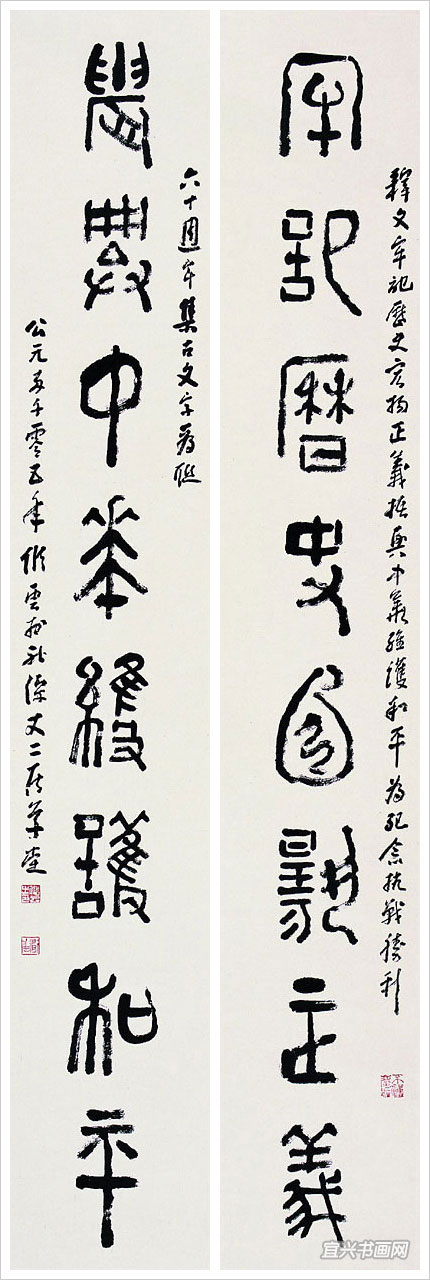 牢記曆史宏揚正義
釋文牢記歷史宏揚正義振興中華維護和平為紀念抗戰勝利
振興中華維護和平
六十週年集古文字為聯
公元兩千零五年 丈二居草堂
宜兴书画网